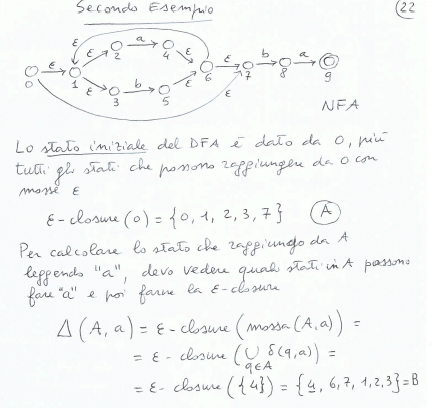 Secondo Esempio
22
ε ε a ε ε
0 1 2 4 6 ε 7 b 8 a 9
ε 3 b 5 ε ε
NFA
Lo stato iniziale del DFA è dato da 0, più
tutti gli stati che possono raggiungere da 0 con
mosse ε
ε-closure (0) = {0, 1, 2, 3, 7} A
Per calcolare lo stato che raggiungo da A
leggendo "a", devo vedere quali stati in A possono
fare "a" e poi farne la ε-closure
Δ(A, a) = ε-closure (mossa (A, a)) =
= ε-closure (∪ δ(q, a)) =
q∈A
= ε-closure ({4}) = {4, 6, 7, 1, 2, 3} = B